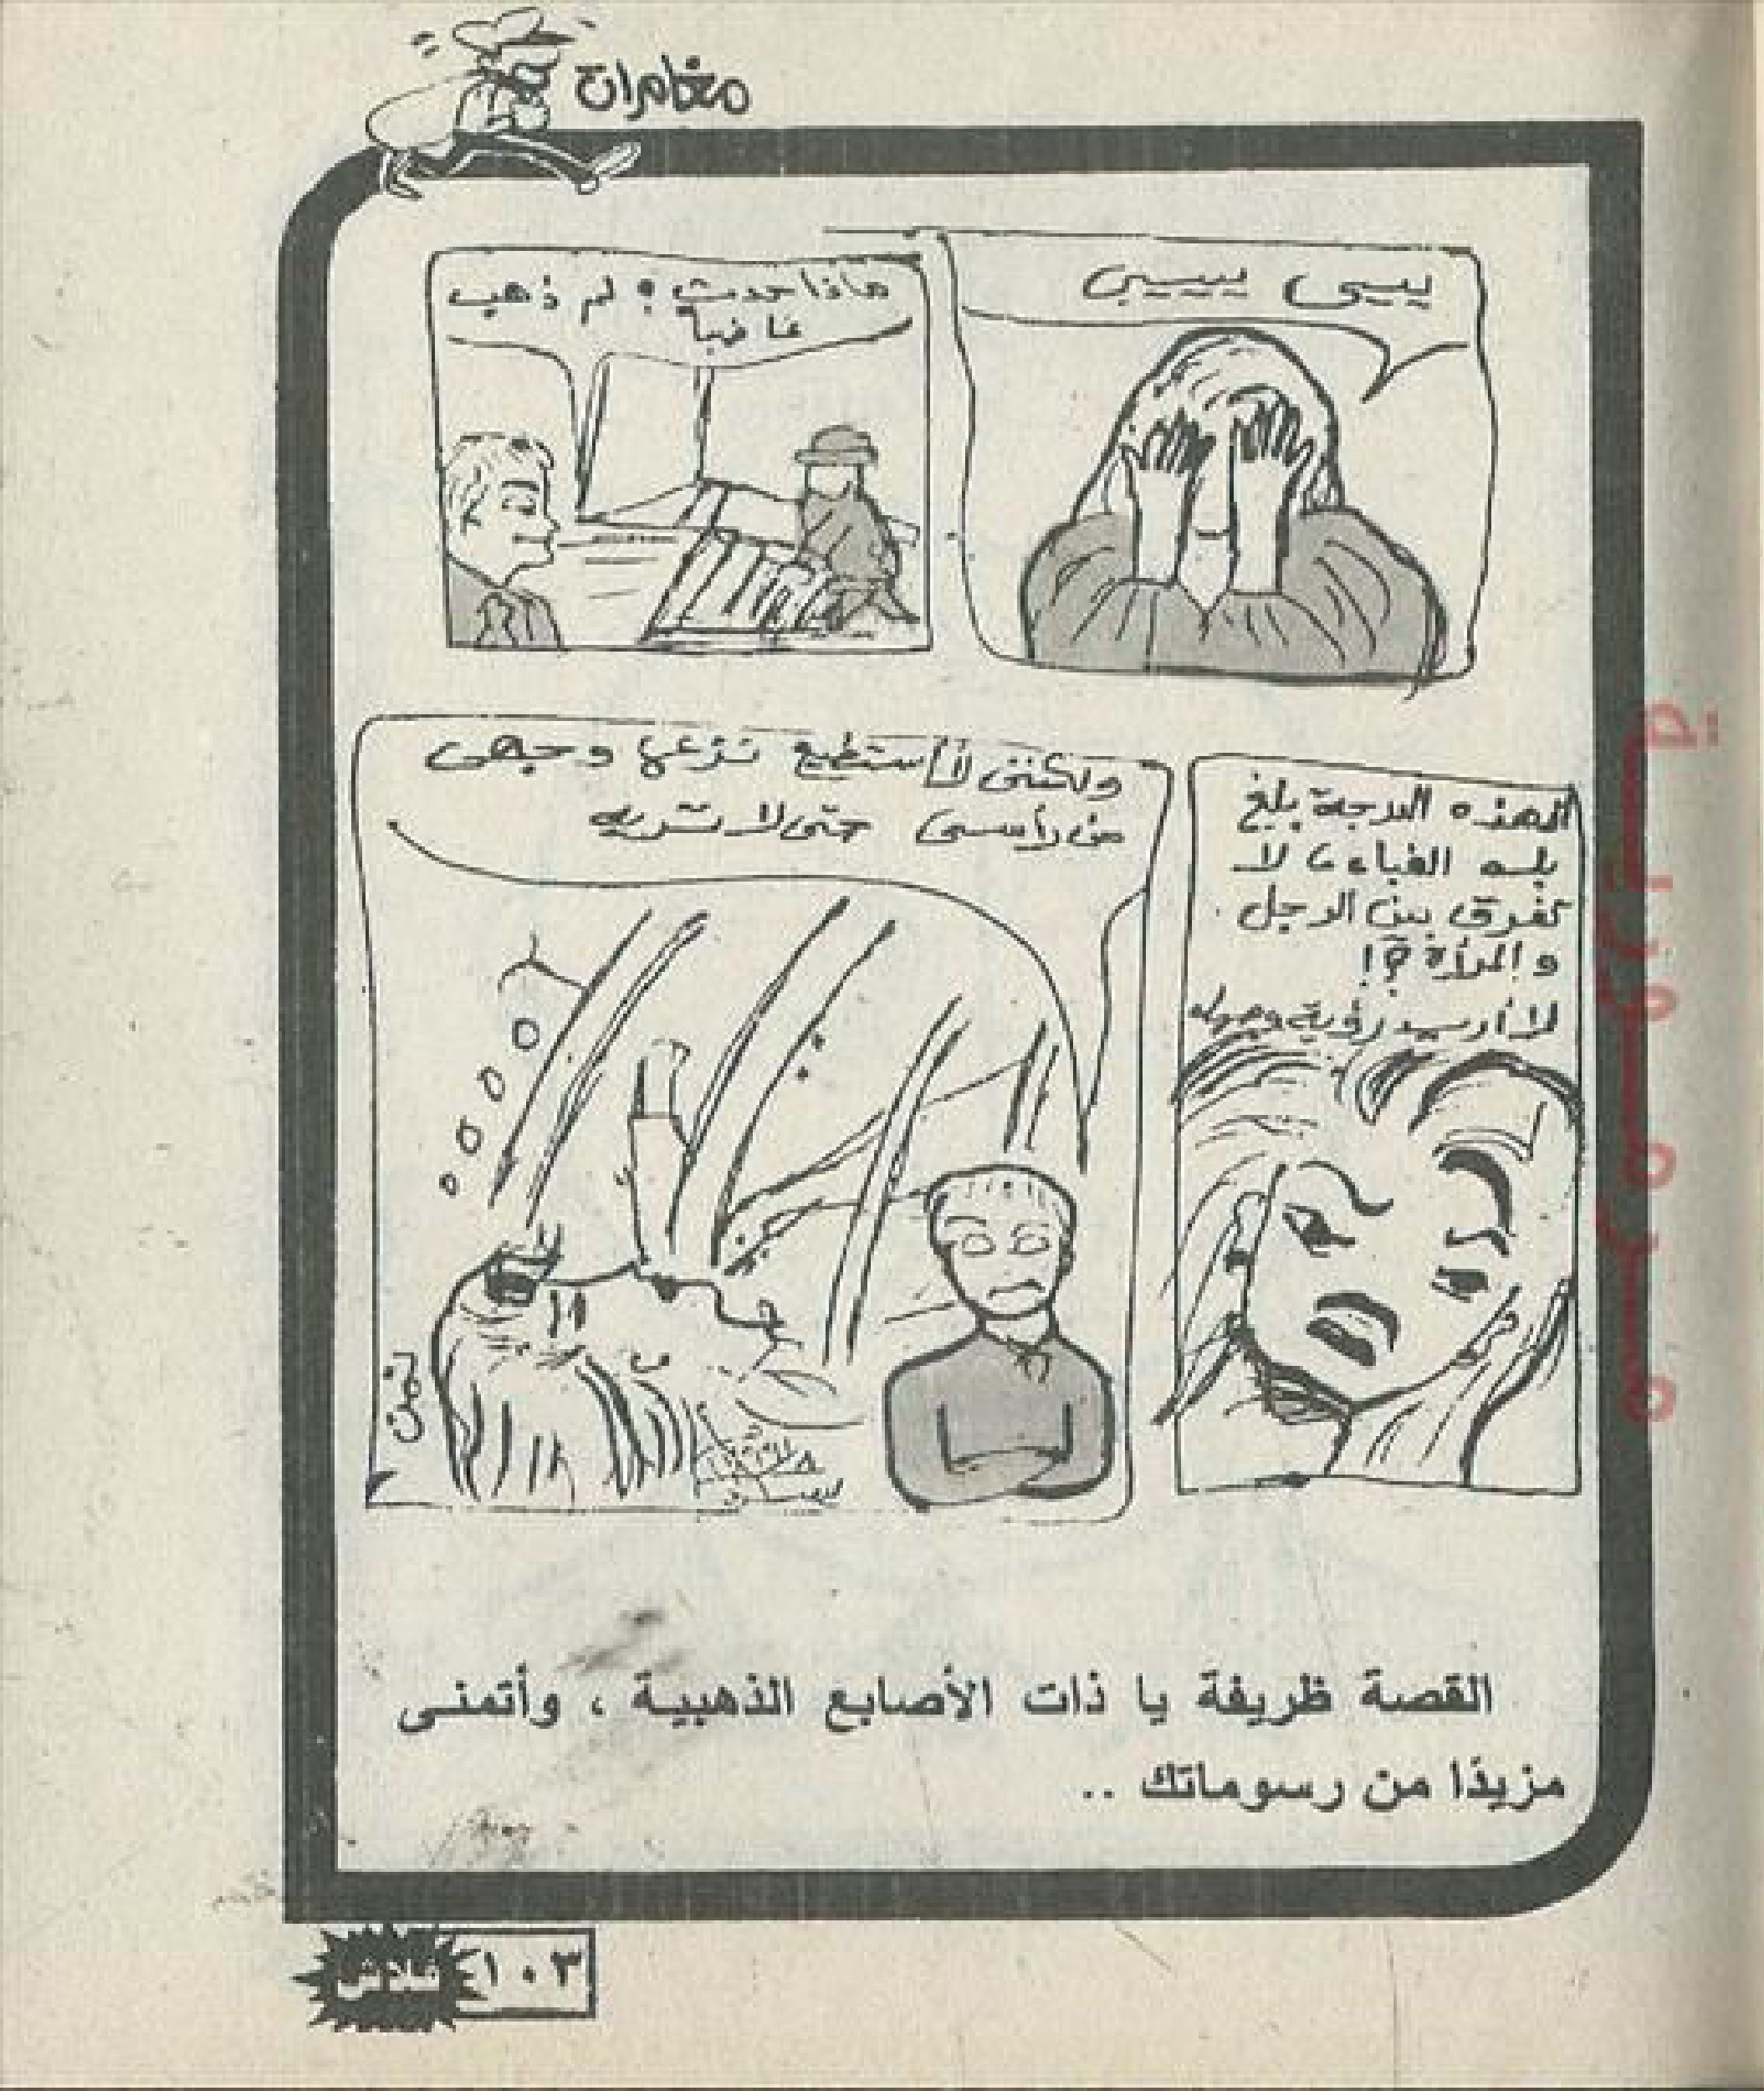 مغامرات
ييييى ييييييى
ماذا حدث ؟ لم ذهب
غاضباً
ألهذه الدرجة بلغ
به الغباء ، لا
يفرق بين الرجل
والمرأة ؟!
لا أريد رؤية وجهه
ولكننى لا أستطيع نزعها وجهى
من رأسى حتى لا تريه
تمت
القصة ظريفة يا ذات الأصابع الذهبية ، وأتمنى
مزيدًا من رسوماتك ..
فلاش
١٠٣